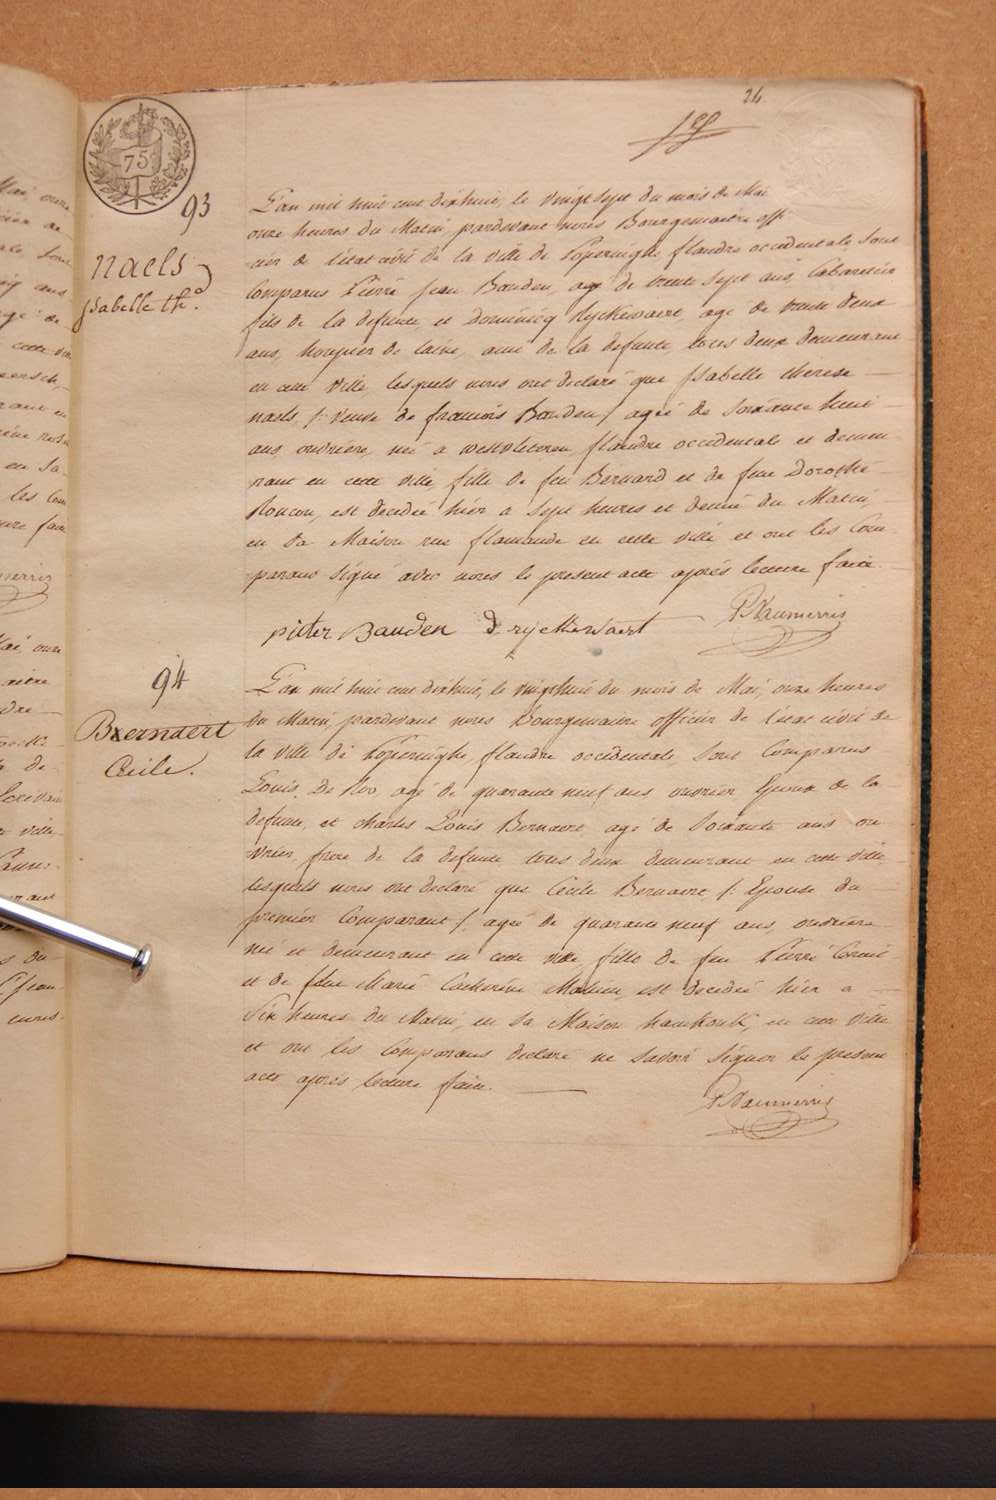 24
75
93
naels
Isabelle th.
L'an mil huit cent dixhuit, le vingt sept du mois de Mai
onze heures du Matin, pardevant nous Bourgemaitre offi
cier de l'état civil de la ville de Poperinghe flandre occidentale sont
Comparus Pierre Jean Bauden, agé de trente sept ans, Cabaretier
fils de la defunte, et Dominicq Ryckewaert, agé de trente deux
ans, houpier de laine, ami de la defunte, tous deux demeurant
en cette ville lesquels nous ont declaré que Isabelle therese
naels, /: veuve de francois Bauden / agée de soixante huit
ans ouvrière, né a westvleteren flandre occidentale et demeu
rant en cette ville, fille de feu Bernard et de feue Dorothé
Roucou, est decedée hier a sept heures et demie du Matin,
en sa Maison rue flamande en cette ville et ont les Com
parans signé avec nous le present acte après lecture faite.
pieter Bauden D rijckewaert PVaumerris
94
Bernaert
Cecile.
L'an mil huit cent dixhuit, le vingthuit du mois de Mai, onze heures
du Matin, pardevant nous Bourgemaitre officier de l'état civil de
la ville de Poperinghe, flandre occidentale, sont Comparus
Louis De Roo, agé de quarante neuf ans ouvrier Epoux de la
defunte, et charles Louis Bernaert, agé de soixante ans ou
vrier, frere de la defunte tous deux demeurant en cette ville,
lesquels nous ont declaré que Cecile Bernaert /: Epouse du
premier Comparant /. agée de quarante neuf ans, ouvrière
né et demeurant en cette ville, fille de feu Pierre
et de feue Marie Catherine est decedée hier a
Six heures du Matin, en sa Maison en cette ville
et ont les Comparans declaré ne savoir signer le present
acte après lecture faite.
PVaumerris